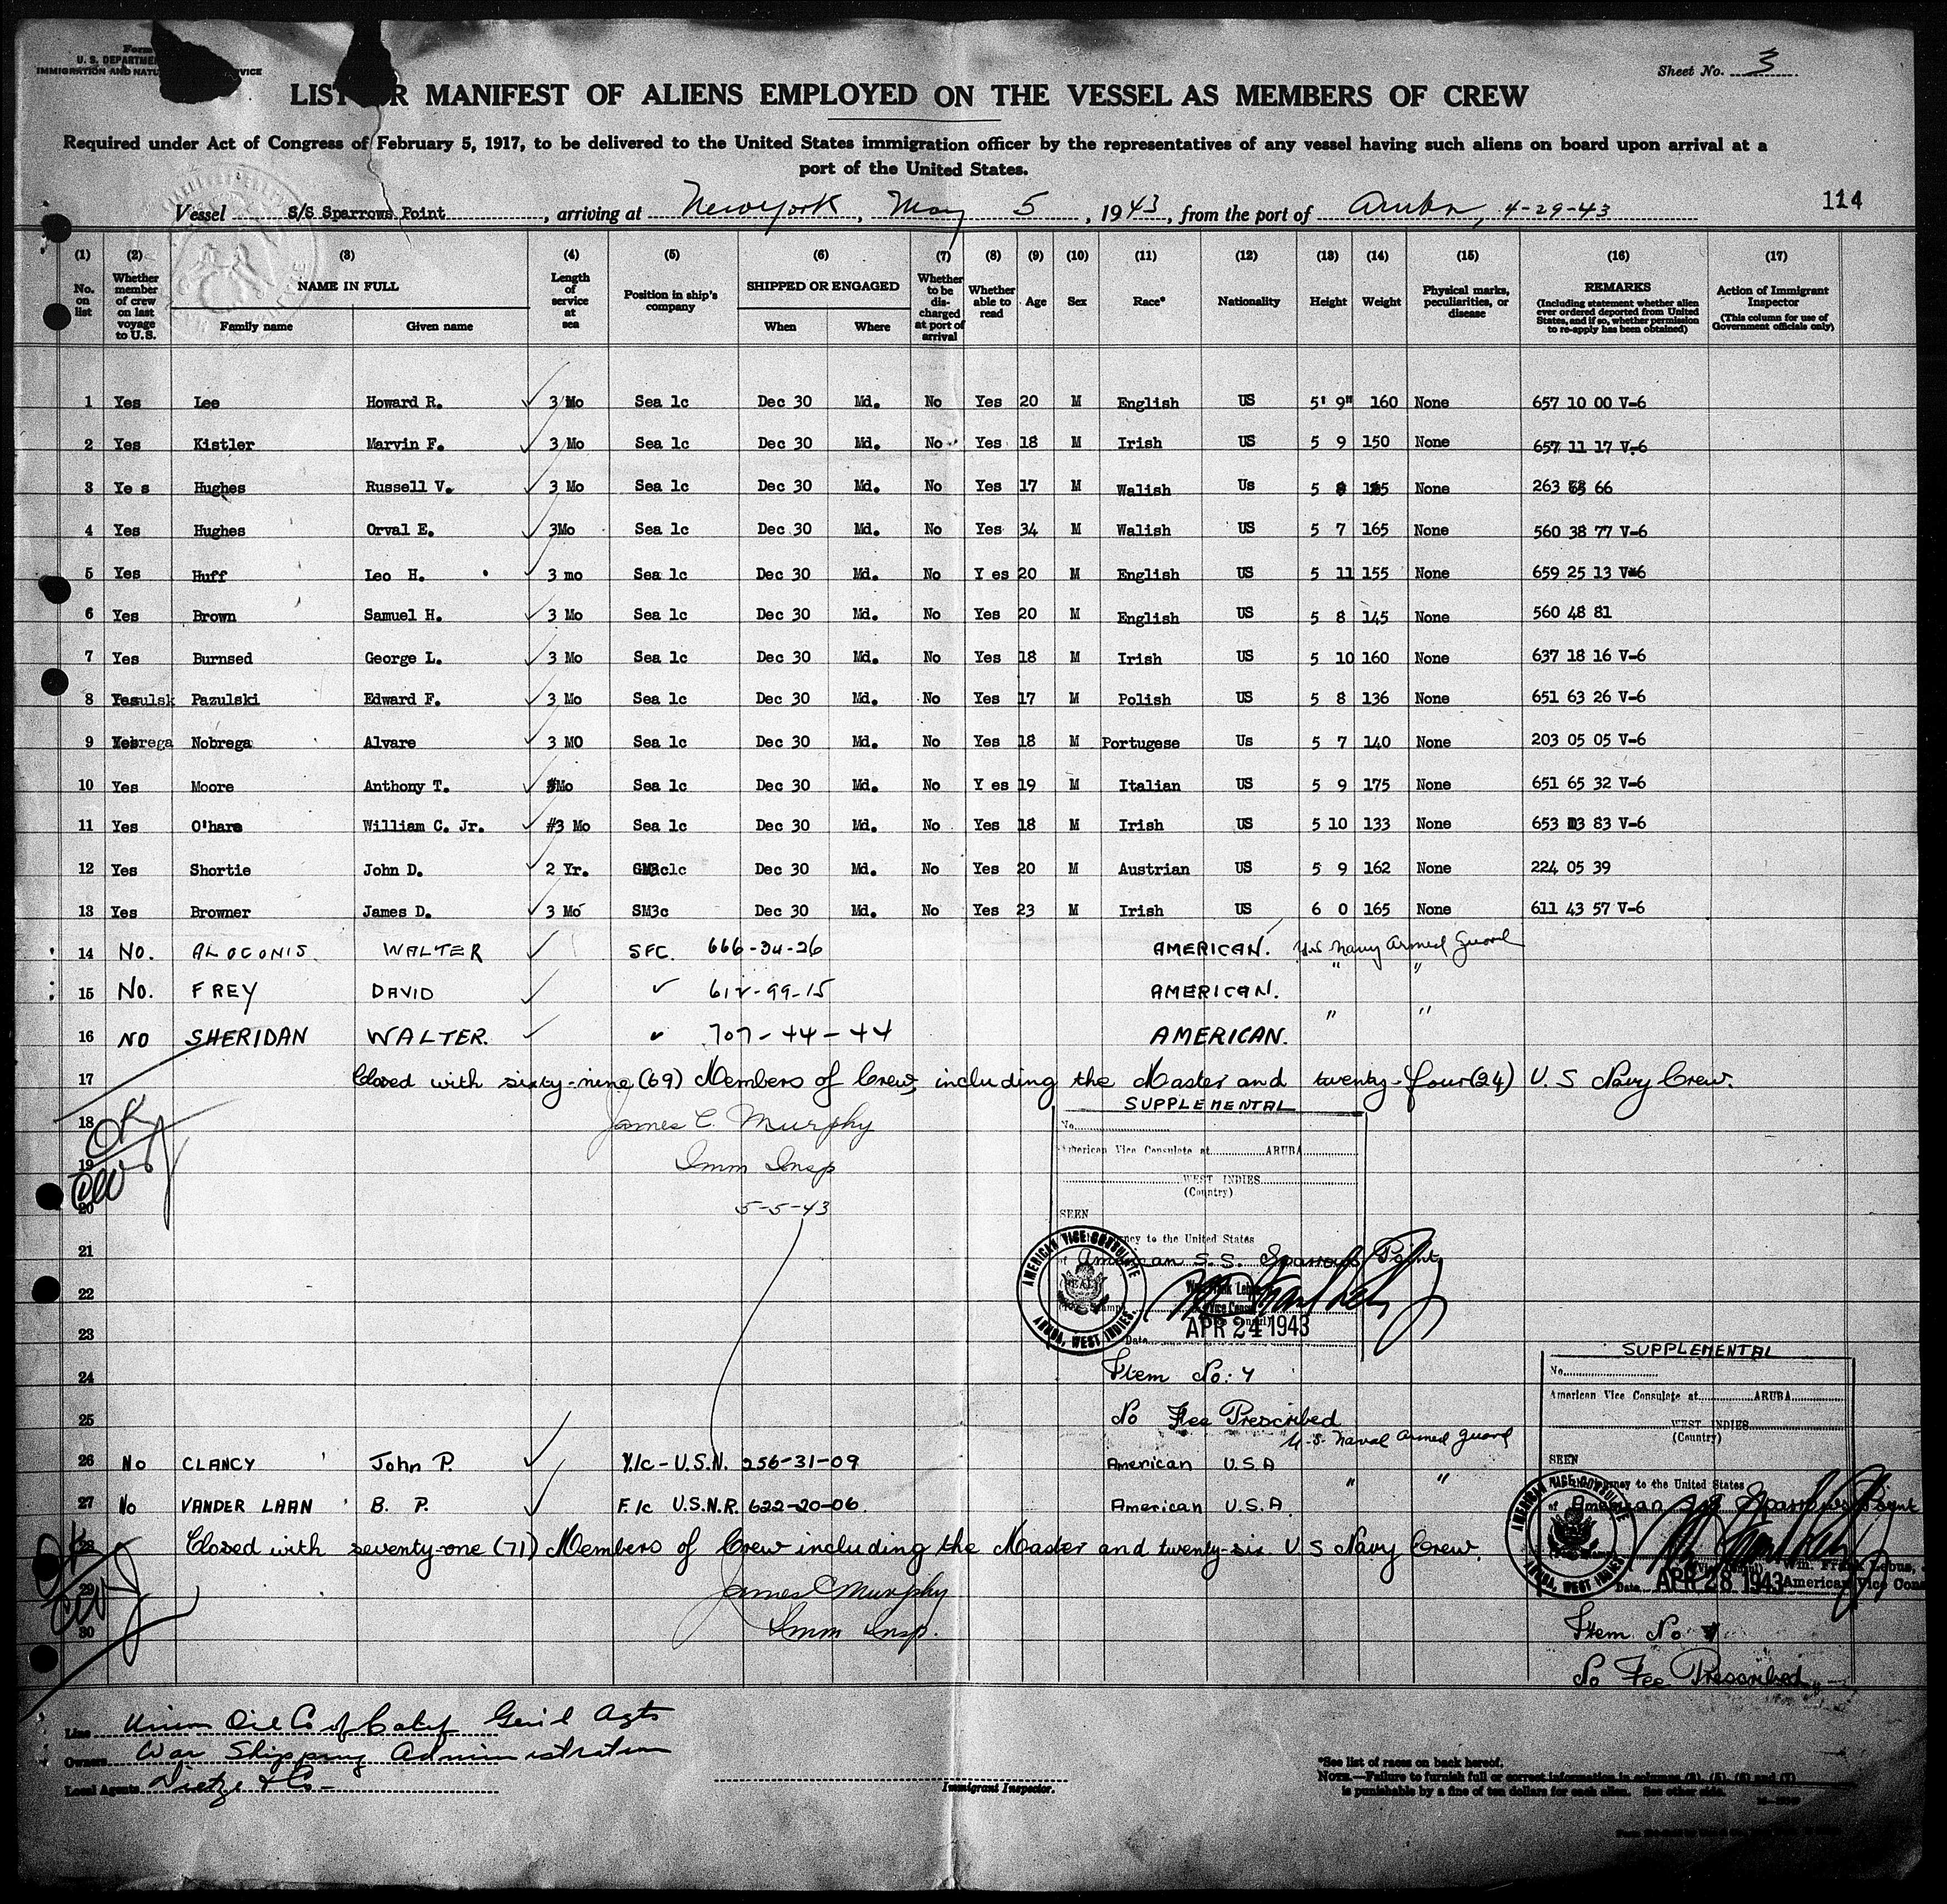 Form
U. S. DEPARTME
IMMIGRATION AND NATU VICE
Sheet No. 3
LIST OR MANIFEST OF ALIENS EMPLOYED ON THE VESSEL AS MEMBERS OF CREW
Required under Act of Congress of February 5, 1917, to be delivered to the United States immigration officer by the representatives of any vessel having such aliens on board upon arrival at a
port of the United States.
Vessel S/S Sparrows Point, arriving at New York, May 5, 1943, from the port of Aruba, 4-29-43
114
(1) (2) (3) (4) (5) (6) (7) (8) (9) (10) (11) (12) (13) (14) (15) (16) (17)
No. on list
Whether member of crew on last voyage to U.S.
NAME IN FULL
Family name Given name
Length of service at sea
Position in ship's company
SHIPPED OR ENGAGED
When Where
Whether to be discharged at port of arrival
Whether able to read
Age
Sex
Race*
Nationality
Height
Weight
Physical marks, peculiarities, or disease
REMARKS
(Including statement whether alien ever ordered deported from United States, and if so, whether permission to re-apply has been obtained)
Action of Immigrant Inspector
(This column for use of Government officials only)
1 Yes Lee Howard R. 3 Mo Sea 1c Dec 30 Md. No Yes 20 M English US 5' 9" 160 None 657 10 00 V-6
2 Yes Kistler Marvin F. 3 Mo Sea 1c Dec 30 Md. No Yes 18 M Irish US 5 9 150 None 657 11 17 V-6
3 Ye s Hughes Russell V. 3 Mo Sea 1c Dec 30 Md. No Yes 17 M Walish Us 5 None 263 66
4 Yes Hughes Orval E. 3Mo Sea 1c Dec 30 Md. No Yes 34 M Walish US 5 7 165 None 560 38 77 V-6
5 Yes Huff Leo H. 3 mo Sea 1c Dec 30 Md. No Y es 20 M English US 5 11 155 None 659 25 13 V-6
6 Yes Brown Samuel H. 3 Mo Sea 1c Dec 30 Md. No Yes 20 M English US 5 8 145 None 560 48 81
7 Yes Burnsed George L. 3 Mo Sea 1c Dec 30 Md. No Yes 18 M Irish US 5 10 160 None 637 18 16 V-6
8 Yes Pazulski Edward F. 3 Mo Sea 1c Dec 30 Md. No Yes 17 M Polish US 5 8 136 None 651 63 26 V-6
9 Yes Nobrega Alvare 3 MO Sea 1c Dec 30 Md. No Yes 18 M Portugese Us 5 7 140 None 203 05 05 V-6
10 Yes Moore Anthony T. Mo Sea 1c Dec 30 Md. No Y es 19 M Italian US 5 9 175 None 651 65 32 V-6
11 Yes O'hare William C. Jr. #3 Mo Sea 1c Dec 30 Md. No Yes 18 M Irish US 5 10 133 None 653 83 V-6
12 Yes Shortie John D. 2 Yr. Dec 30 Md. No Yes 20 M Austrian US 5 9 162 None 224 05 39
13 Yes Browner James D. 3 Mo SM3c Dec 30 Md. No Yes 23 M Irish US 6 0 165 None 611 43 57 V-6
14 No. ALOCONIS WALTER SFC. 666-34-26 AMERICAN. U.S. Navy Armed Guard
15 No. FREY DAVID 612-99-15 AMERICAN. " "
16 NO SHERIDAN WALTER. 707-44-44 AMERICAN. " "
17 Closed with sixty-nine (69) Members of Crew, including the Master and twenty-four (24) U. S Navy Crew.
18 James C. Murphy
19 Imm Insp
20 5-5-43
OK
SUPPLEMENTAL
No.
American Vice Consulate at ARUBA
WEST INDIES
(Country)
SEEN
ney to the United States
of American S.S. Sparrows Point
AMERICAN VICE CONSULATE
ARUBA, WEST INDIES
Vice Consul
Date APR 24 1943
21
22
23
24 Item No: 7
25 No Fee Prescribed
U.S. Naval Armed Guard
26 No CLANCY John P. Y.1c - U.S.N. 256-31-09 American U.S.A
27 No VANDER LAAN B. P. F.1c U.S.N.R. 622-20-06 American U.S.A. " "
28 Closed with seventy-one (71) Members of Crew including the Master and twenty-six U S Navy Crew.
29 James C Murphy
30 Imm Insp.
SUPPLEMENTAL
No.
American Vice Consulate at ARUBA
WEST INDIES
(Country)
SEEN
ney to the United States
of American S.S. Sparrows Point
AMERICAN VICE CONSULATE
ARUBA, WEST INDIES
Wm. Frank Lebus,
Date APR 28 1943 American Vice Cons
Item No 7
No Fee Prescribed
Line Union Oil Co of Calif Gen'l Agts
Owners War Shipping Administration
Local Agents Dietze & Co
Immigrant Inspector.
*See list of races on back hereof.
NOTE.—Failure to furnish full or correct information in columns (3), (5), (6) and (7)
is punishable by a fine of ten dollars for each alien. See other side.